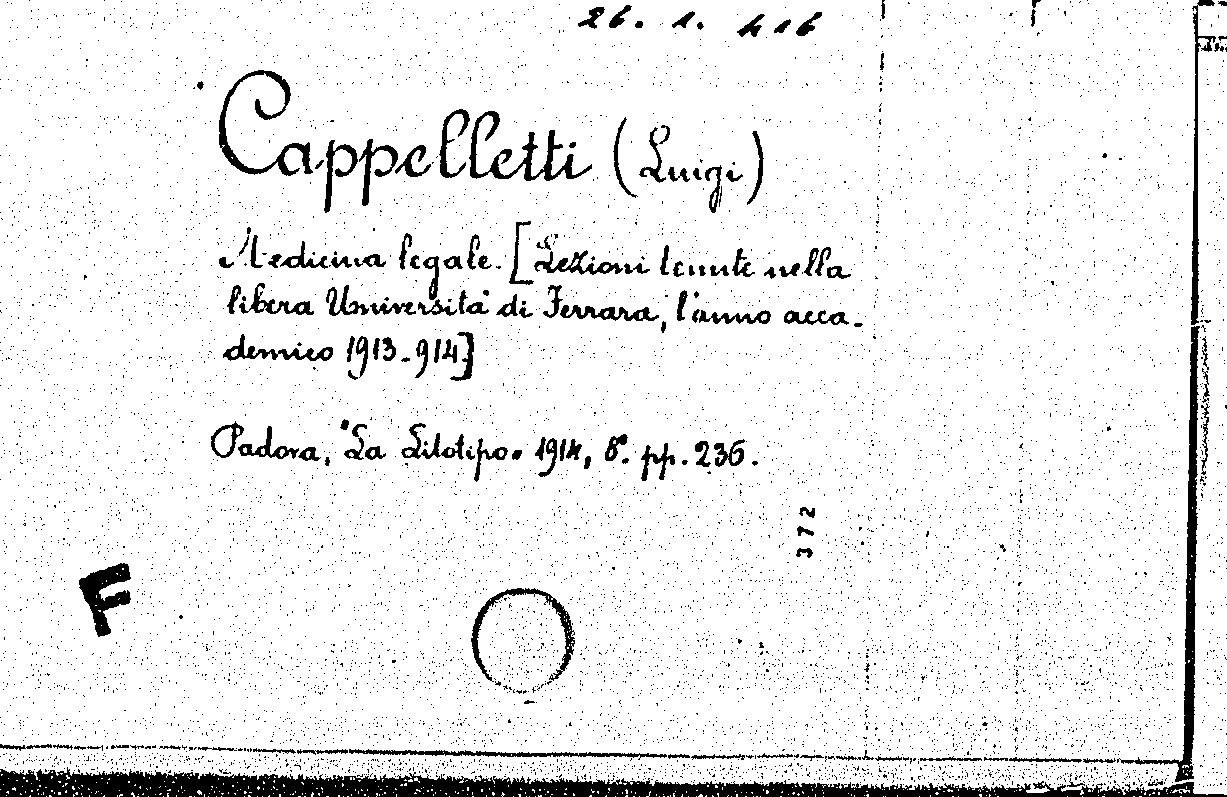 26. 1. 416
Cappelletti (Luigi)
Medicina legale. [Lezioni tenute nella
libera Università di Ferrara, l'anno acca-
demico 1913-914]
Padova, "La Litotipo" 1914, 8°. pp. 236.
372
F